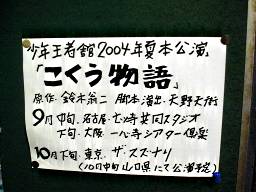 少年王者館2004年夏本公演
「こくう物語」
原作・鈴木翁二 脚本演出・天野天街
9月中旬、名古屋・七ツ寺共同スタジオ
下旬・大阪・一心寺シアター倶楽
10月下旬・東京、ザ・スズナリ
(10月中旬山口県にて公演予定)